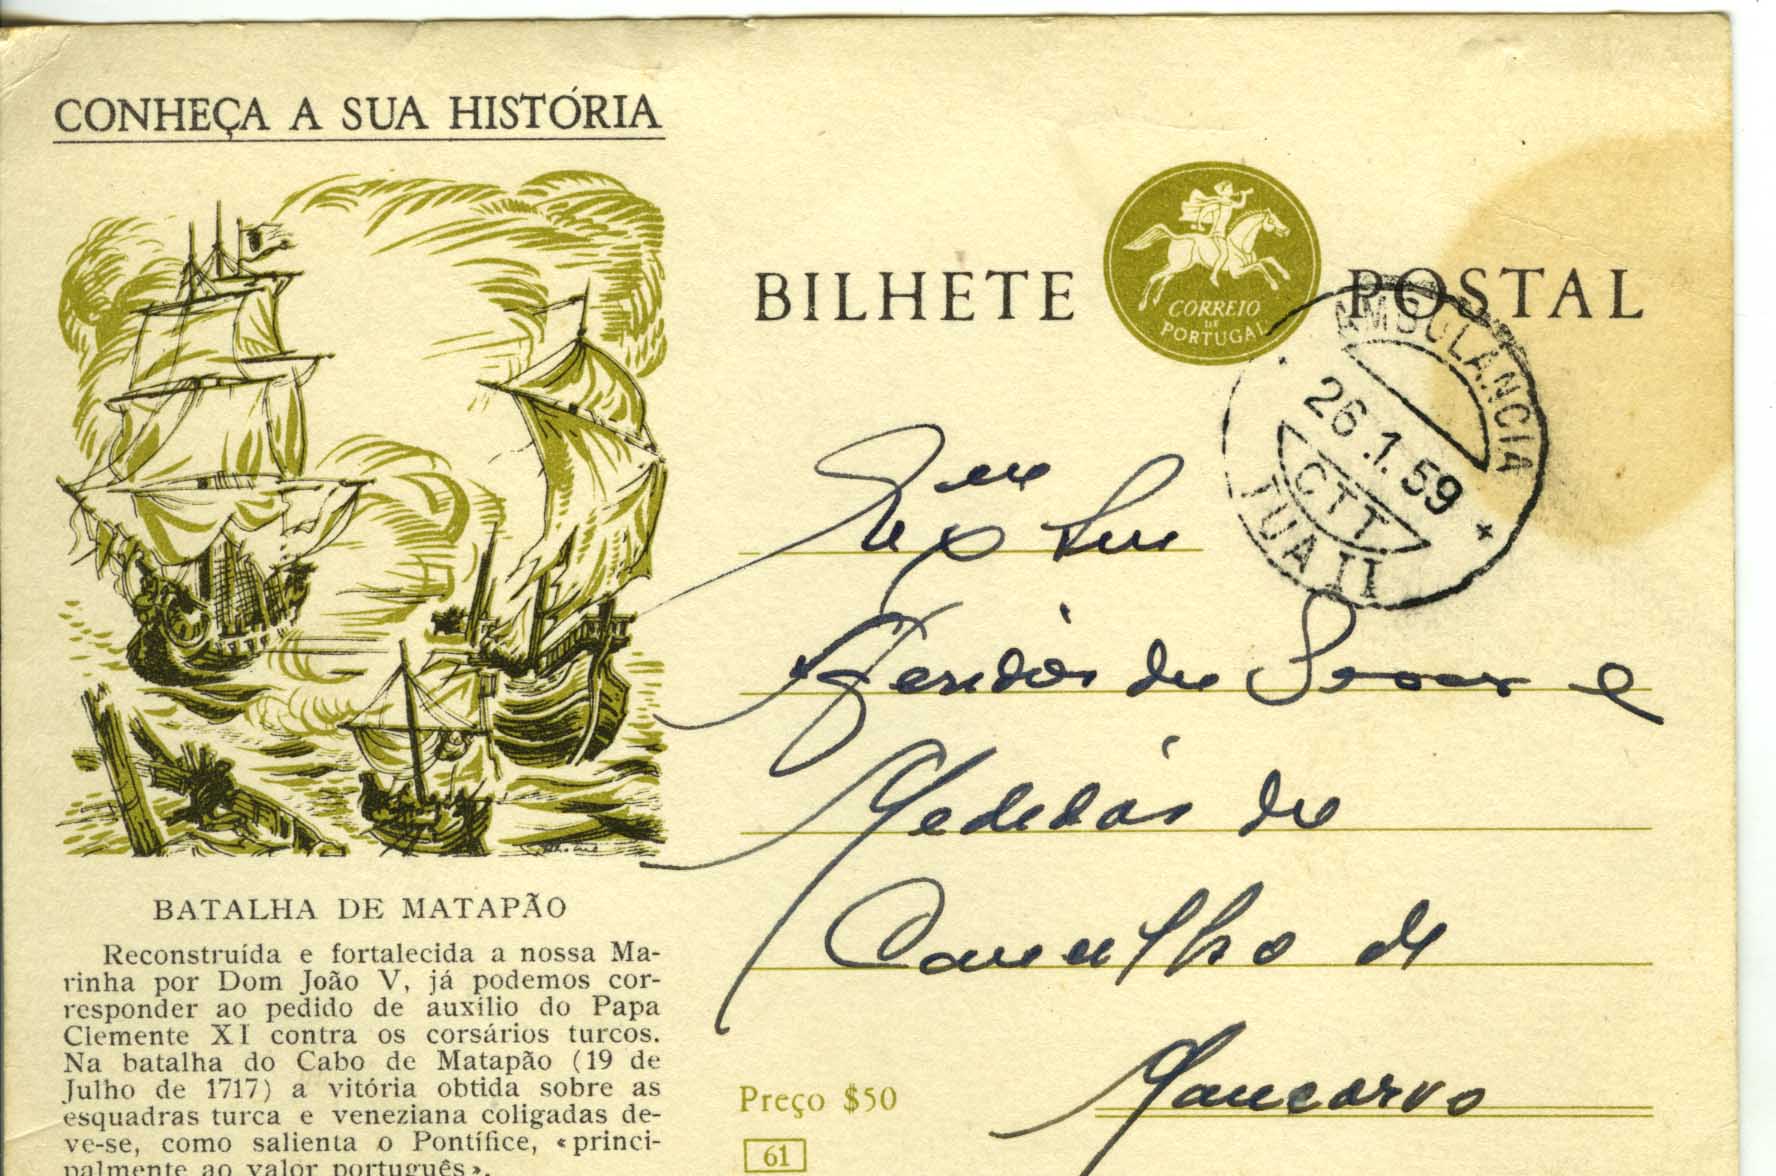 CONHEÇA A SUA HISTÓRIA
BILHETE POSTAL
CORREIO
DE
PORTUGAL
AMBULANCIA
26.1.59
CTT
TUA II
Exmo Snr
Aferidor de Pesos e
Medidas do
Concelho de
Moncorvo
BATALHA DE MATAPÃO
Reconstruída e fortalecida a nossa Ma-
rinha por Dom João V, já podemos cor-
responder ao pedido de auxílio do Papa
Clemente XI contra os corsários turcos.
Na batalha do Cabo de Matapão (19 de
Julho de 1717) a vitória obtida sobre as
esquadras turca e veneziana coligadas de-
ve-se, como salienta o Pontífice, «princi-
palmente ao valor português».
Preço $50
61